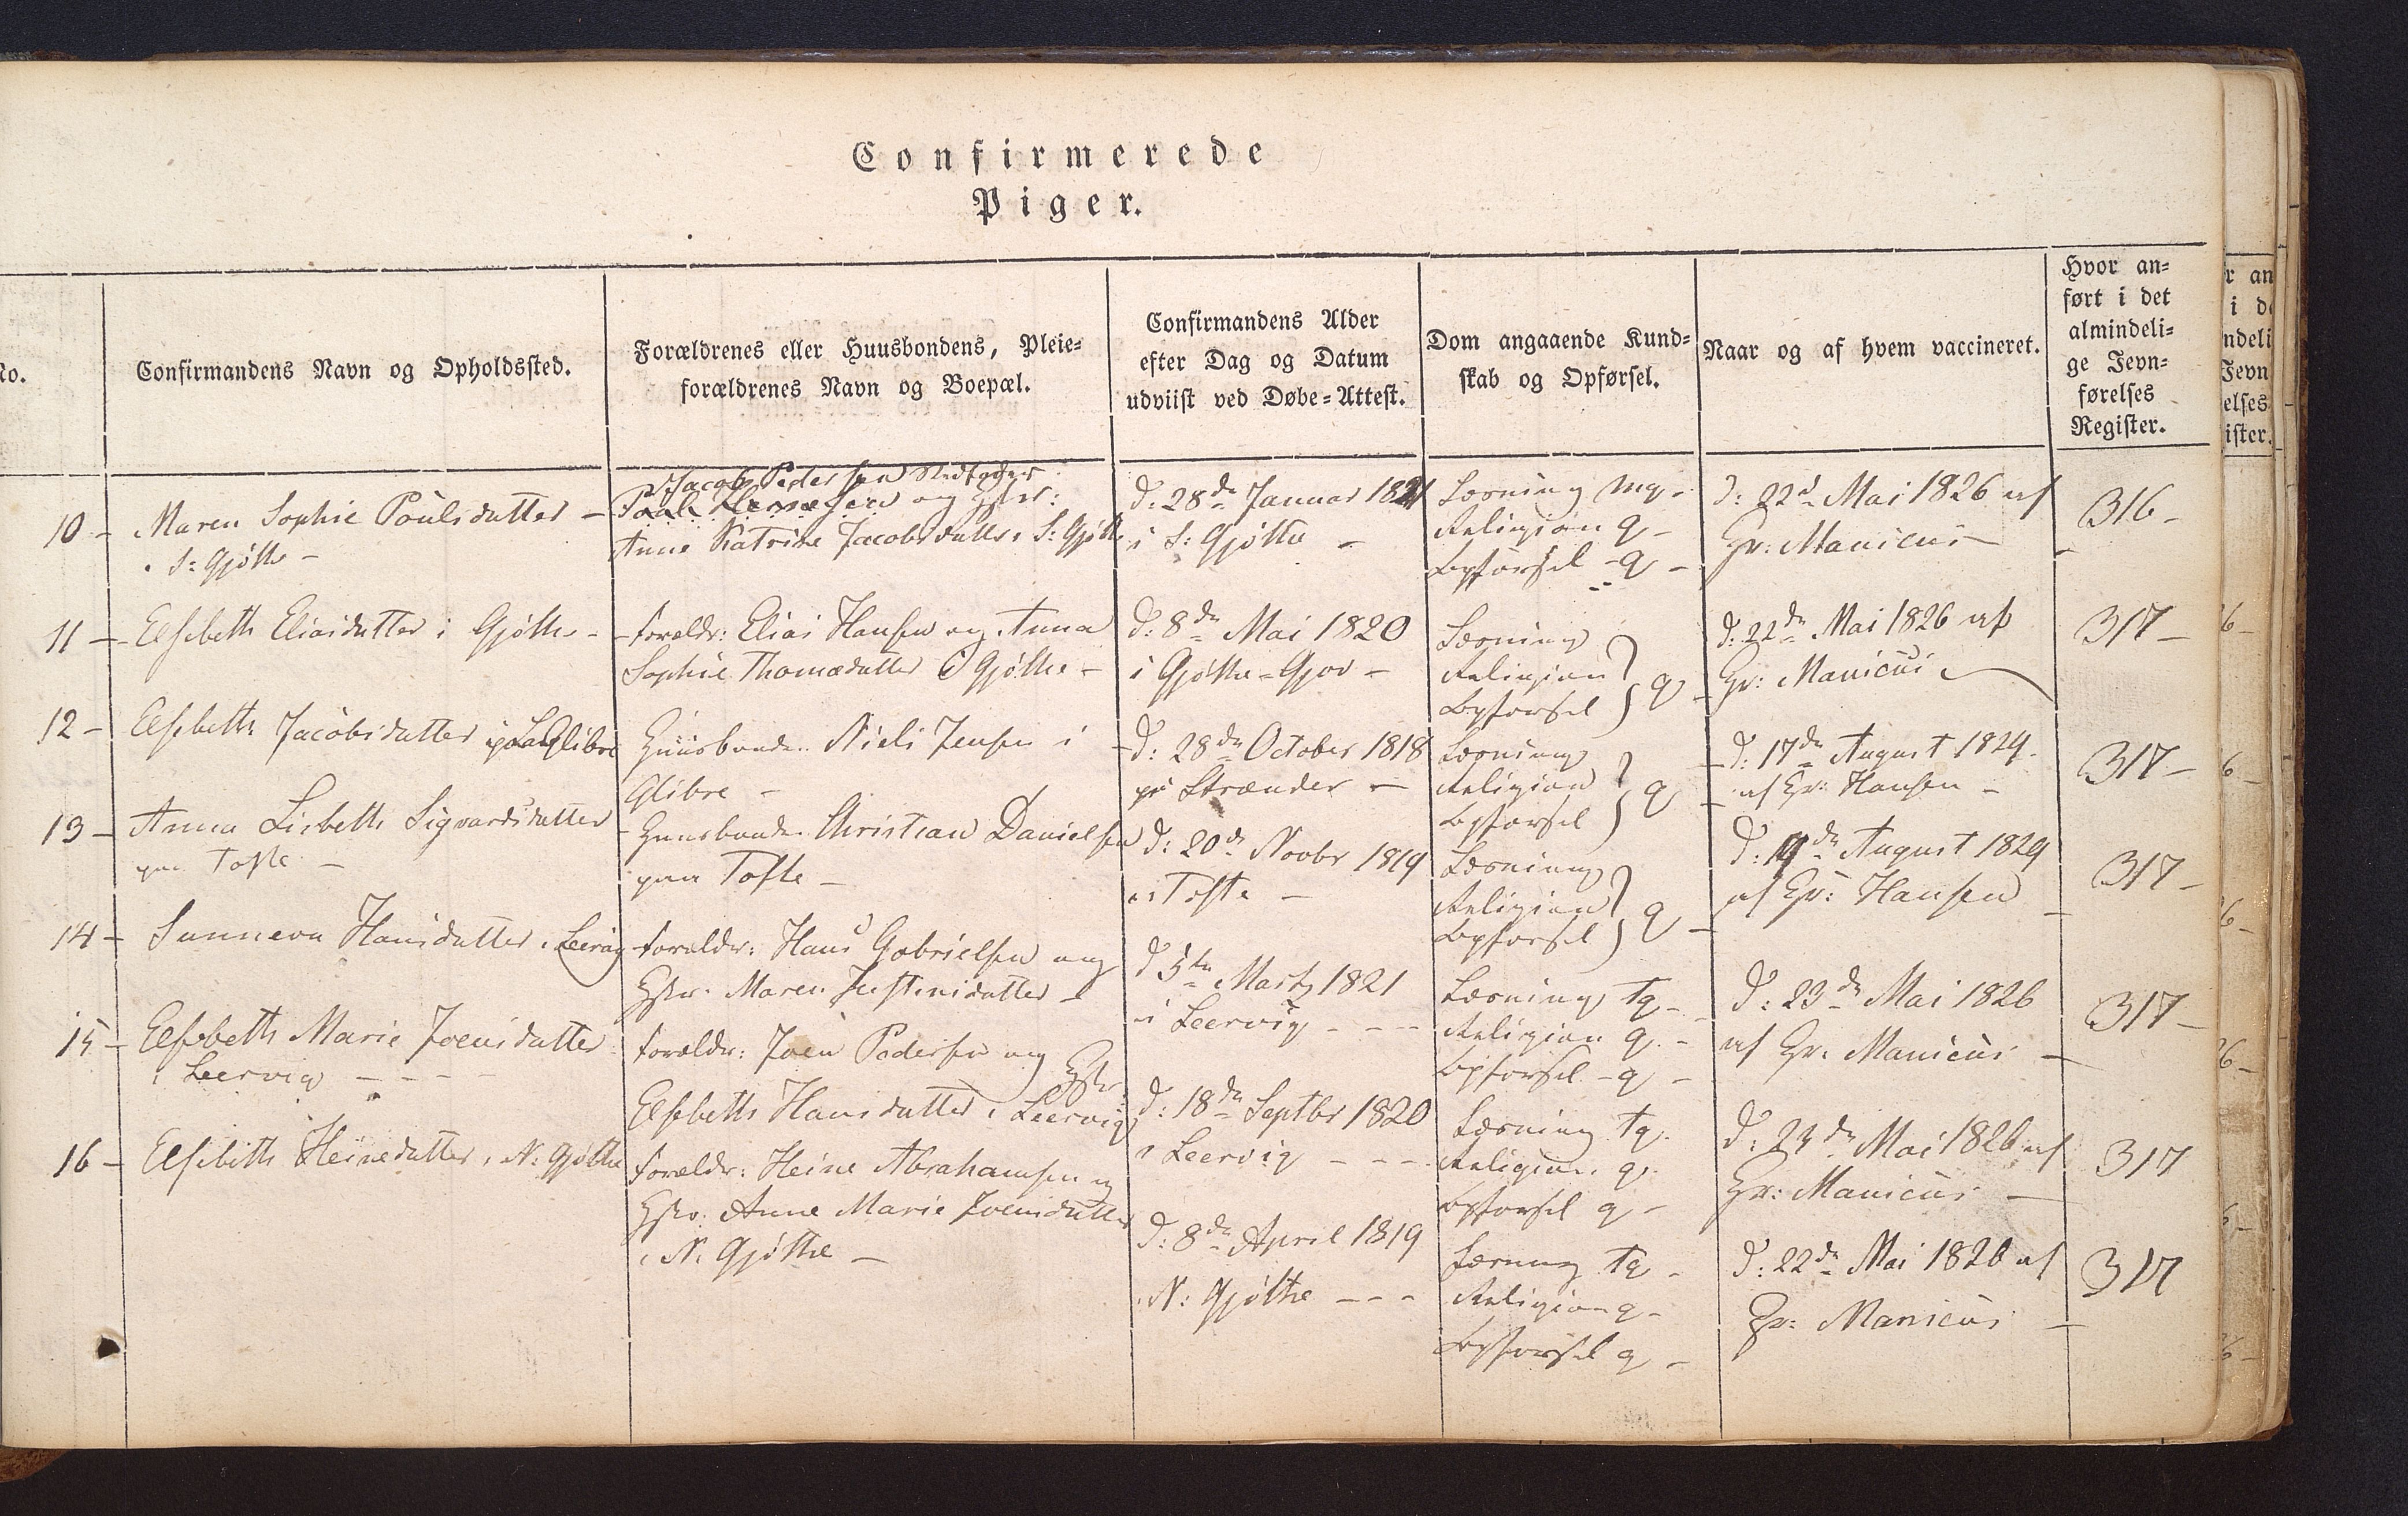 Confirmerede
Piger.
No.
Confirmandens Navn og Opholdssted.
Forældrenes eller Huusbondens, Pleie-
forældrenes Navn og Boepæl.
Confirmandens Alder
efter Dag og Datum
udviist ved Døbe-Attest.
Dom angaaende Kund-
skab og Opførsel.
Naar og af hvem vaccineret.
Hvor an-
ført i det
almindeli-
ge Jevn-
førelses
Register.
10 - Maren Sophie Poulsdatter -
i S: Gjøthe -
Jacob Pedersen
Poul og Hstr:
Anne Katrine Jacobsdatter i S: Gjøthe
d: 28de Januar 1821
i S: Gjøthe -
Læsning mg -
Religion g -
Opførsel - g -
d: 22d Mai 1826 af
Hr: Manicus -
316 -
11 - Elsebeth Eliasdatter i Gjøthe -
Forældr: Elias Hansen og Anna
Sophie Thomædatter i Gjøthe -
d: 8de Mai 1820
i Gjøthe-Gjov -
Læsning
Religion
Opførsel } g -
d: 22de Mai 1826 af
Hr: Manicus
317 -
12 - Elsebeth Jacobsdatter Glibre
Huusbonde: Niels Jensen i
Glibre -
d: 28de October 1818
på Strænder -
Læsning
Religion
Opførsel } g
d: 17de August 1829.
af Hr: Hansen -
317 -
13 - Anna Lisbeth Sigvardsdatter
paa Tofte -
Huusbonde: Christian Danielsen
paa Tofte -
d: 20de Novbr 1819
i Tofte -
Læsning
Religion
Opførsel } g -
d: de August 1829
af Hr: Hansen -
317 -
14 - Sunneva Hansdatter i Leervig
Forældr: Hans Gabrielsen og
Hstr: Maren Justinisdatter -
d 5te Martz 1821
i Leervig - - -
Læsning tg -
Religion g. -
Opførsel - g -
d: 23de Mai 1826
af Hr: Manicus -
317 -
15 - Elsebeth Marie Joensdatter
i Leervig - - - -
Forældr: Joen Pedersen og Hstr:
Elsebeth Hansdatter i Leervig
d: 18de Septbr 1820
i Leervig - - -
Læsning tg.
Religion g.
Opførsel g -
d: 23de Mai 1826 af
Hr: Manicus -
317
16 - Elsebeth Heinedatter i N: Gjøthe
Forældr: Heine Abrahamsen og
Hstr: Anne Marie Joensdatter
i N: Gjøthe -
d: 8de April 1819
N: Gjøthe - - -
Læsning tg -
Religion g -
Opførsel g -
d: 22de Mai 1826 af
Hr: Manicus -
317